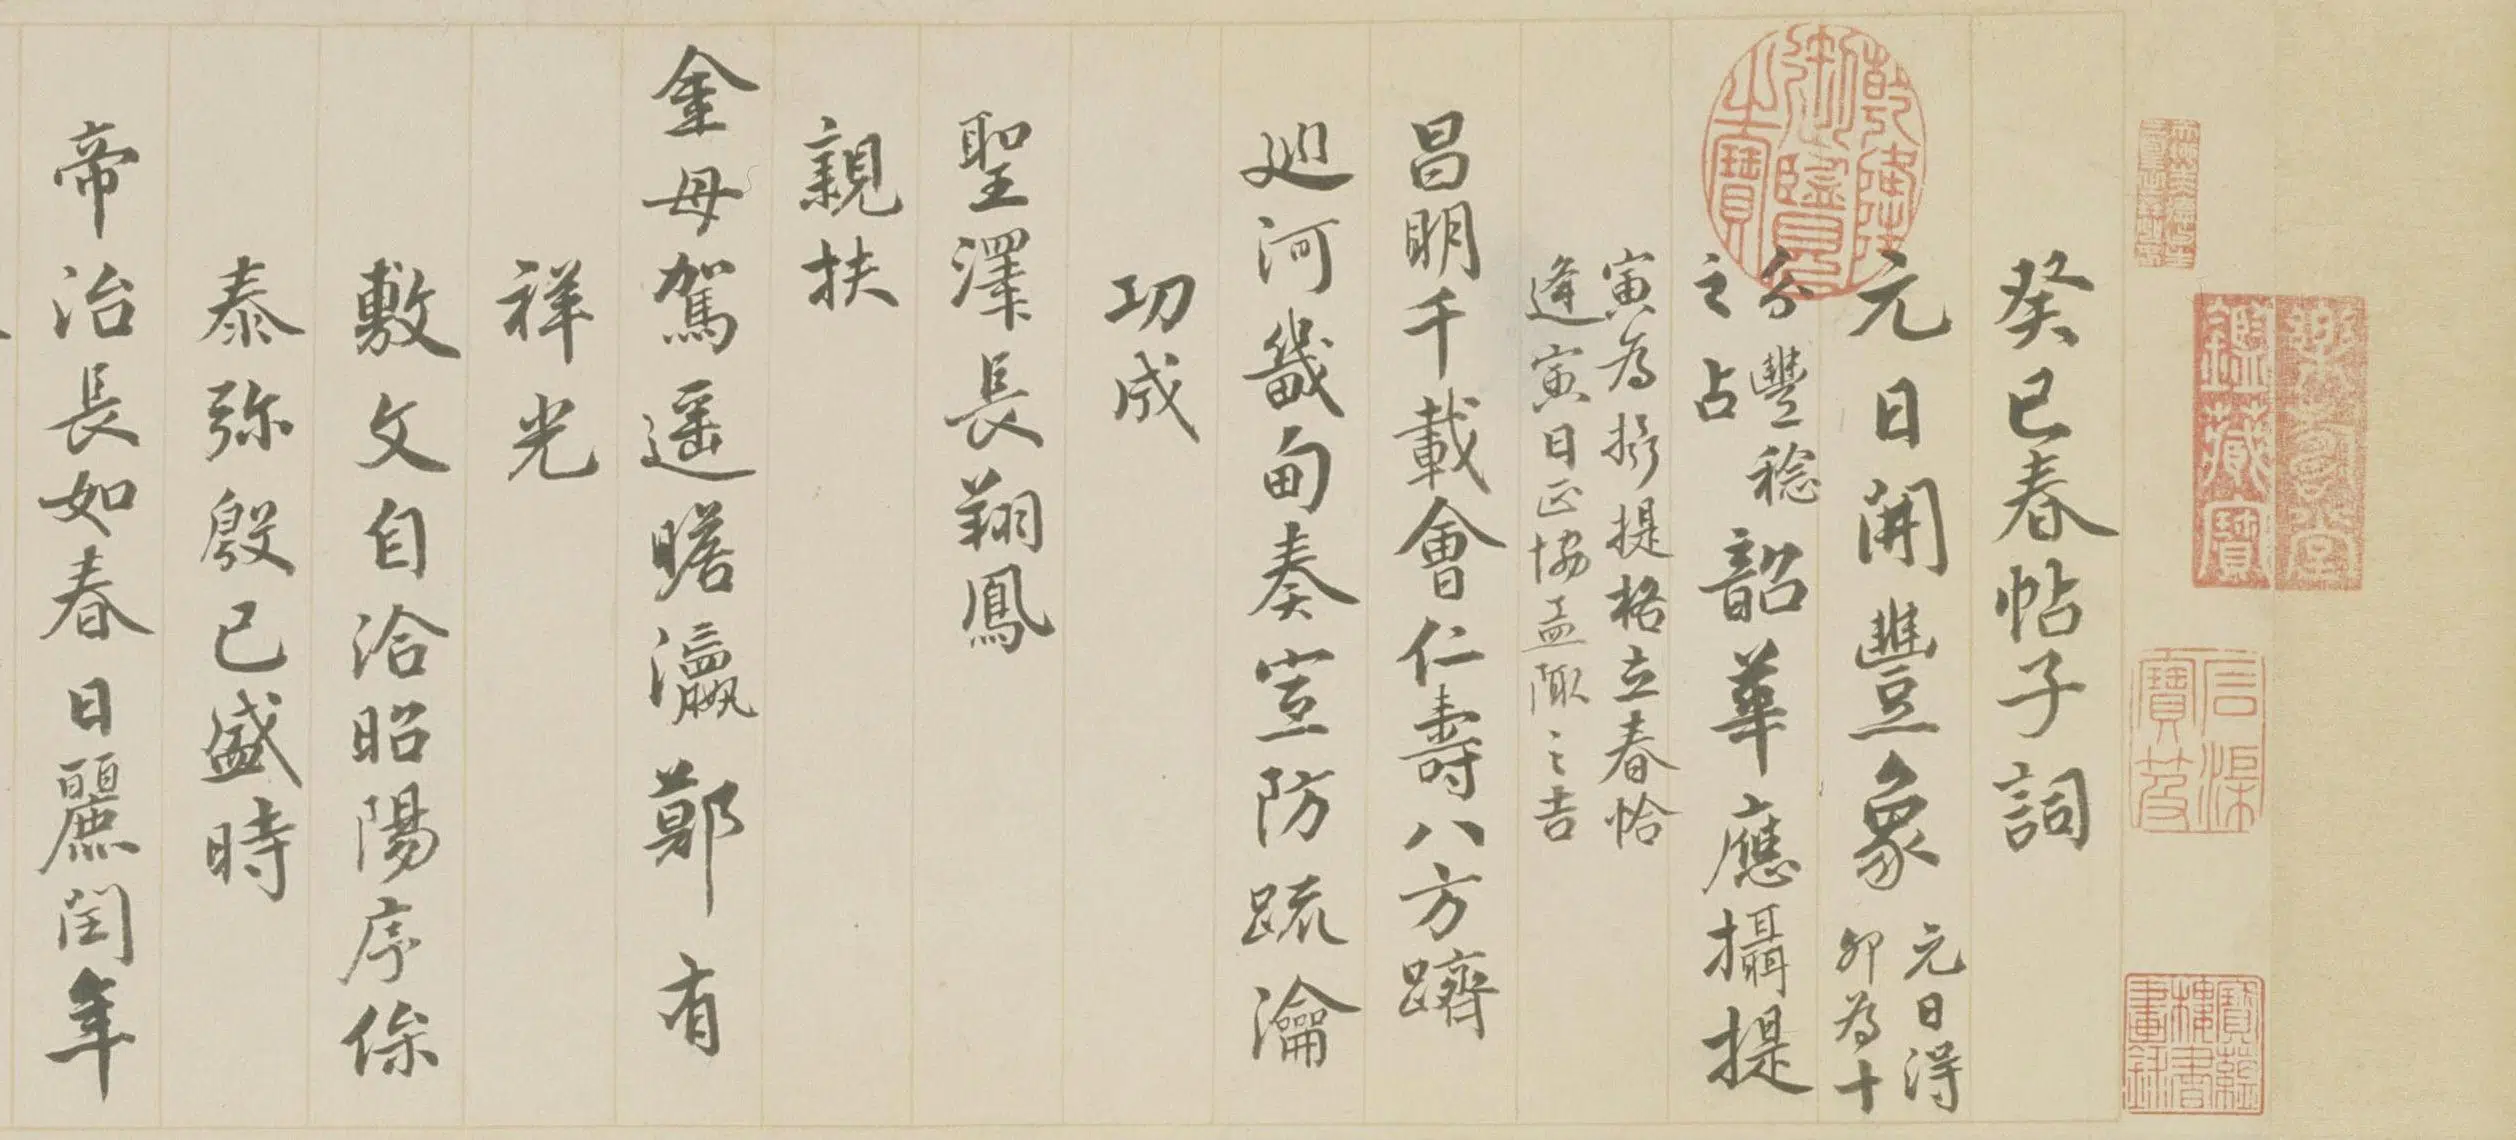 癸巳春帖子詞
元日開豐象
元日得
卯為十
分豐稔
之占
韶華應攝提
寅為攝提格立春恰
逢寅日正協孟陬之吉
昌朙千載會仁壽八方躋
廵河畿甸奏宣防疏瀹
功成
聖澤長翔鳳
親扶
金母駕遥瞻瀛鄚有
祥光
敷文自洽昭陽序保
泰弥殷已盛時
帝治長如春日麗閏年
乾隆御覽之寶
樂壽堂鑑藏寶
石渠寶笈
寶蘊樓書畫錄